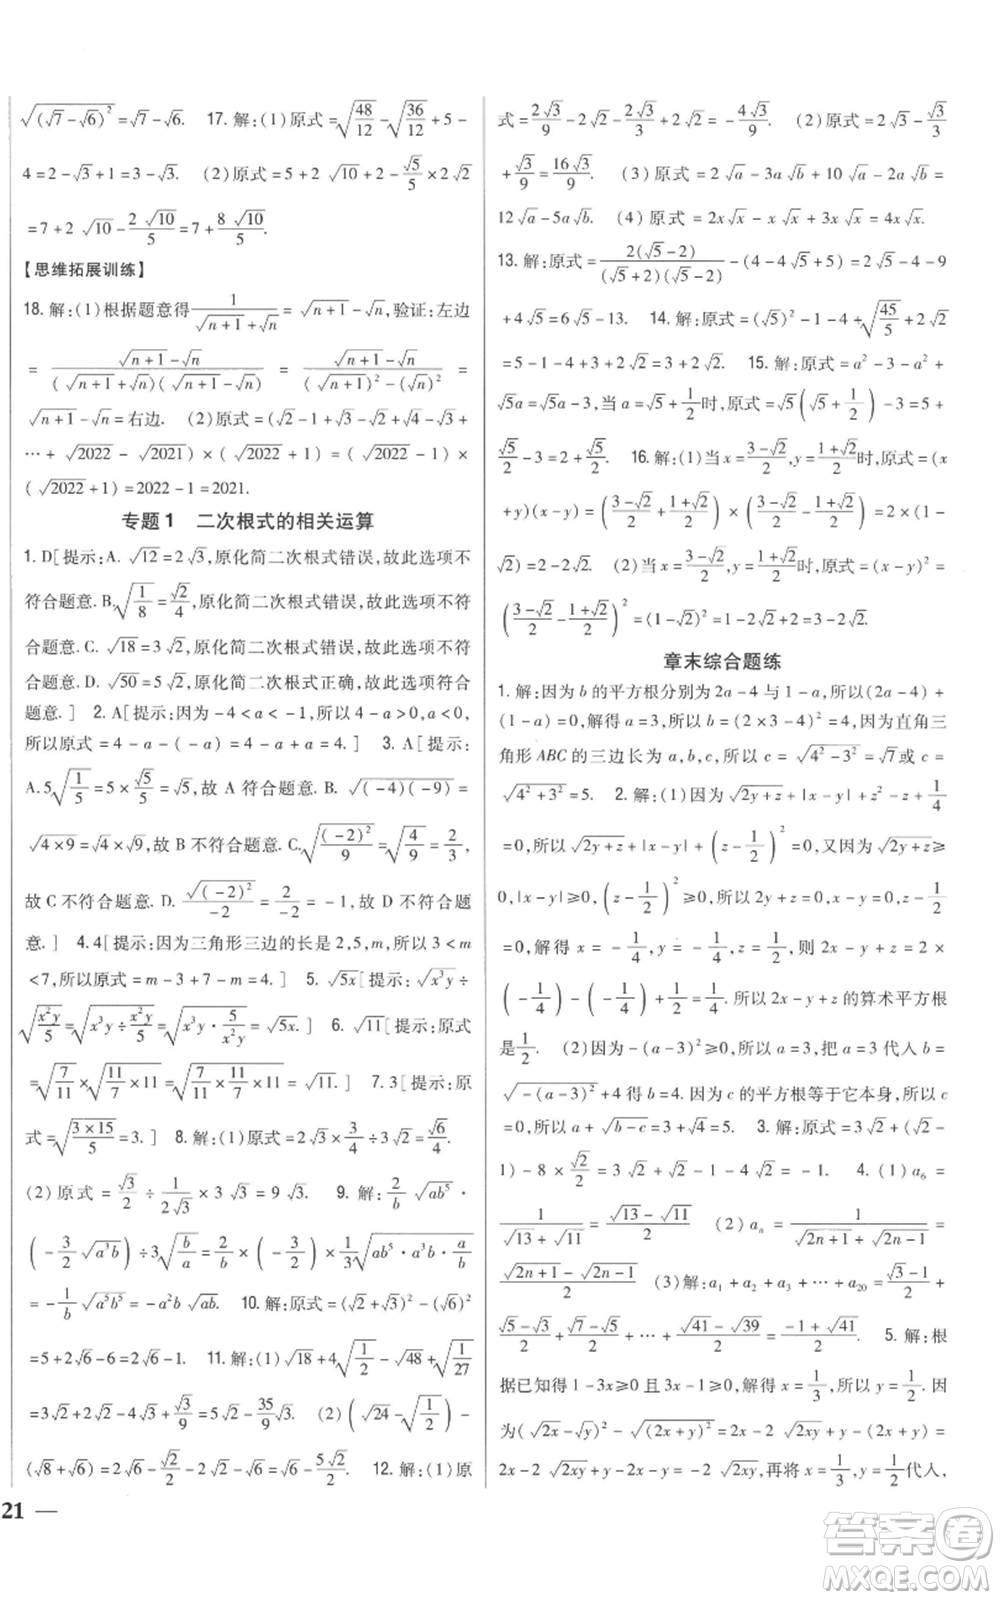 √((√7-√6)²)=√7-√6. 17.解:(1)原式=√(48/12)-√(36/12)+5-
4=2-√3+1=3-√3. (2)原式=5+2√10+2-√5/5×2√2
=7+2√10-2√10/5=7+8√10/5.
【思维拓展训练】
18.解:(1)根据题意得1/(√(n+1)+√n)=√(n+1)-√n,验证:左边
=(√(n+1)-√n)/((√(n+1)+√n)(√(n+1)-√n))=(√(n+1)-√n)/((√(n+1))²-(√n)²)=
√(n+1)-√n=右边. (2)原式=(√2-1+√3-√2+√4-√3+
…+√2022-√2021)×(√2022+1)=(√2022-1)×
(√2022+1)=2022-1=2021.
专题1 二次根式的相关运算
1.D[提示:A.√12=2√3,原化简二次根式错误,故此选项不
符合题意.B.√(1/8)=√2/4,原化简二次根式错误,故此选项不符
合题意.C.√18=3√2,原化简二次根式错误,故此选项不符
合题意.D.√50=5√2,原化简二次根式正确,故此选项符合
题意.] 2.A[提示:因为-4<a<-1,所以4-a>0,a<0,
所以原式=4-a-(-a)=4-a+a=4.] 3.A[提示:
A.5√(1/5)=5×√5/5=√5,故A符合题意.B.√((-4)(-9))=
√(4×9)=√4×√9,故B不符合题意.C.√((-2)²/9)=√(4/9)=2/3,
故C不符合题意.D.√((-2)²)/-2=2/-2=-1,故D不符合题
意.] 4.4[提示:因为三角形三边的长是2,5,m,所以3<m
<7,所以原式=m-3+7-m=4.] 5.√5x[提示:√(x³y)÷
√(x²y/5)=√(x³y÷x²y/5)=√(x³y·5/x²y)=√5x.] 6.√11[提示:原式
=√(7/11÷7/11×11)=√(7/11×11/7×11)=√11.] 7.3[提示:原
式=√(3×15/5)=3.] 8.解:(1)原式=3√2×3/4÷3√2=3/4.
(2)原式=√3/3÷1/(2√3)×3√3=9√3. 9.解:2/b√(ab⁵)·
(-3/2√(a³b))÷3√(b/a)=2/b×(-3/2)×1/3√(ab⁵·a³b·a/b)
=-1/b√(a⁵b⁵)=-a²b√ab. 10.解:原式=(√2+√3)²-(√6)°
=5+2√6-1=4+2√6. 11.解:(1)√18+4√(1/2)-√48+√(1/27)
=3√2+2√2-4√3+√3/9=5√2-35√3/9. (2)(√24-√(1/2))-
(√8+√6)=2√6-√2/2-2√2-√6=√6-5√2/2. 12.解:(1)原
式=2√3/9-2√2-2√3/3+2√2=-4√3/9. (2)原式=2√3-√3/3
+√3/9=16√3/9. (3)原式=2√a-3a√b+10√a-2a√b=
12√a-5a√b. (4)原式=2x√x-x√x+3x√x=4x√x.
13.解:原式=2(√5-2)/((√5+2)(√5-2))-(4-4√5+5)=2√5-4-9
+4√5=6√5-13. 14.解:原式=(√5)²-1-4+√(45/5)+2√2
=5-1-4+3+2√2=3+2√2. 15.解:原式=a²-3-a²+
√5a=√5a-3,当a=√5+1/2时,原式=√5(√5+1/2)-3=5+
√5/2-3=2+√5/2. 16.解:(1)当x=(3-√2)/2,y=(1+√2)/2时,原式=(x
+y)(x-y)=((3-√2)/2+(1+√2)/2)×((3-√2)/2-(1+√2)/2)=2×(1-
√2)=2-2√2. (2)当x=(3-√2)/2,y=(1+√2)/2时,原式=(x-y)²=
((3-√2)/2-(1+√2)/2)²=(1-√2)²=1-2√2+2=3-2√2.
章末综合题练
1.解:因为b的平方根分别为2a-4与1-a,所以(2a-4)+
(1-a)=0,解得a=3,所以b=(2×3-4)²=4,因为直角三
角形ABC的三边长为a,b,c,所以c=√(4²-3²)=√7或c=
√(4²+3²)=5. 2.解:(1)因为√(2y+z)+|x-y|+z²-z+1/4
=0,所以√(2y+z)+|x-y|+(z-1/2)²=0.又因为√(2y+z)≥
0,|x-y|≥0,(z-1/2)²≥0,所以2y+z=0,x-y=0,z-1/2
=0,解得x=-1/4,y=-1/4,z=1/2,则2x-y+z=2×
(-1/4)-(-1/4)+1/2=1/4,所以2x-y+z的算术平方根
是1/2. (2)因为-(a-3)²≥0,所以a=3,把a=3代人b=
√(-(a-3)²)+4得b=4.因为c的平方根等于它本身,所以c
=0,所以a+√(b-c)=3+√4=5. 3.解:原式=3√2+(√2-
1)-8×√2/2=3√2+√2-1-4√2=-1. 4.(1)a₆=
1/(√13+√11)=(√13-√11)/2 (2)aₙ=1/(√(2n+1)+√(2n-1))=
(√(2n+1)-√(2n-1))/2 (3)解:a₁+a₂+a₃+…+a₂₀=(√3-1)/2+
(√5-√3)/2+(√7-√5)/2+…+(√41-√39)/2=(-1+√41)/2. 5.解:根
据已知得1-3x≥0且3x-1≥0,解得x=1/3,所以y=1/2.因
为(√2x-√y)²-√((√2x+√y)²)=2x-2√2xy+y-(2x+2√2xy+y)=
2x-2√2xy+y-2x-2√2xy-y=-4√2xy,再将x=1/3,y=1/2代人,
21 —
答案圈
MXQE.COM